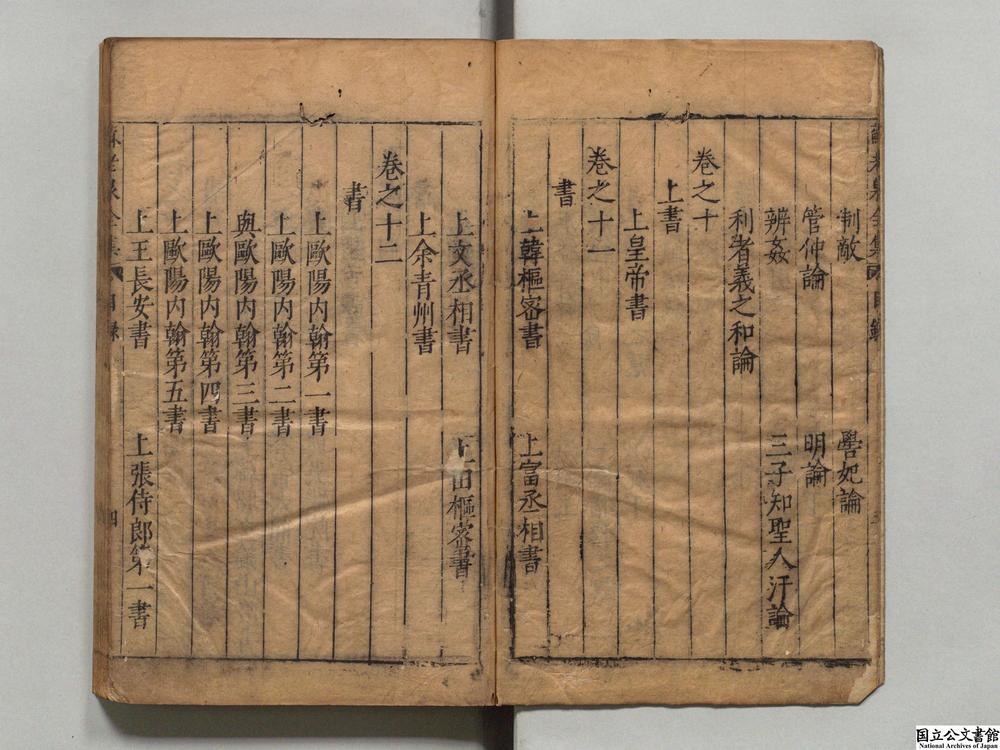 制敵 嚳妃論
管仲論 明論
辨姦 三子知聖人汙論
利者義之和論
卷之十
上書
上皇帝書
卷之十一
書
上韓樞密書 上富丞相書
上文丞相書 上田樞密書
上余青州書
卷之十二
書
上歐陽内翰第一書
上歐陽内翰第二書
與歐陽内翰第三書
上歐陽内翰第四書
上歐陽内翰第五書
上王長安書 上張侍郎第一書
目錄 四
国立公文書館
National Archives of Japan